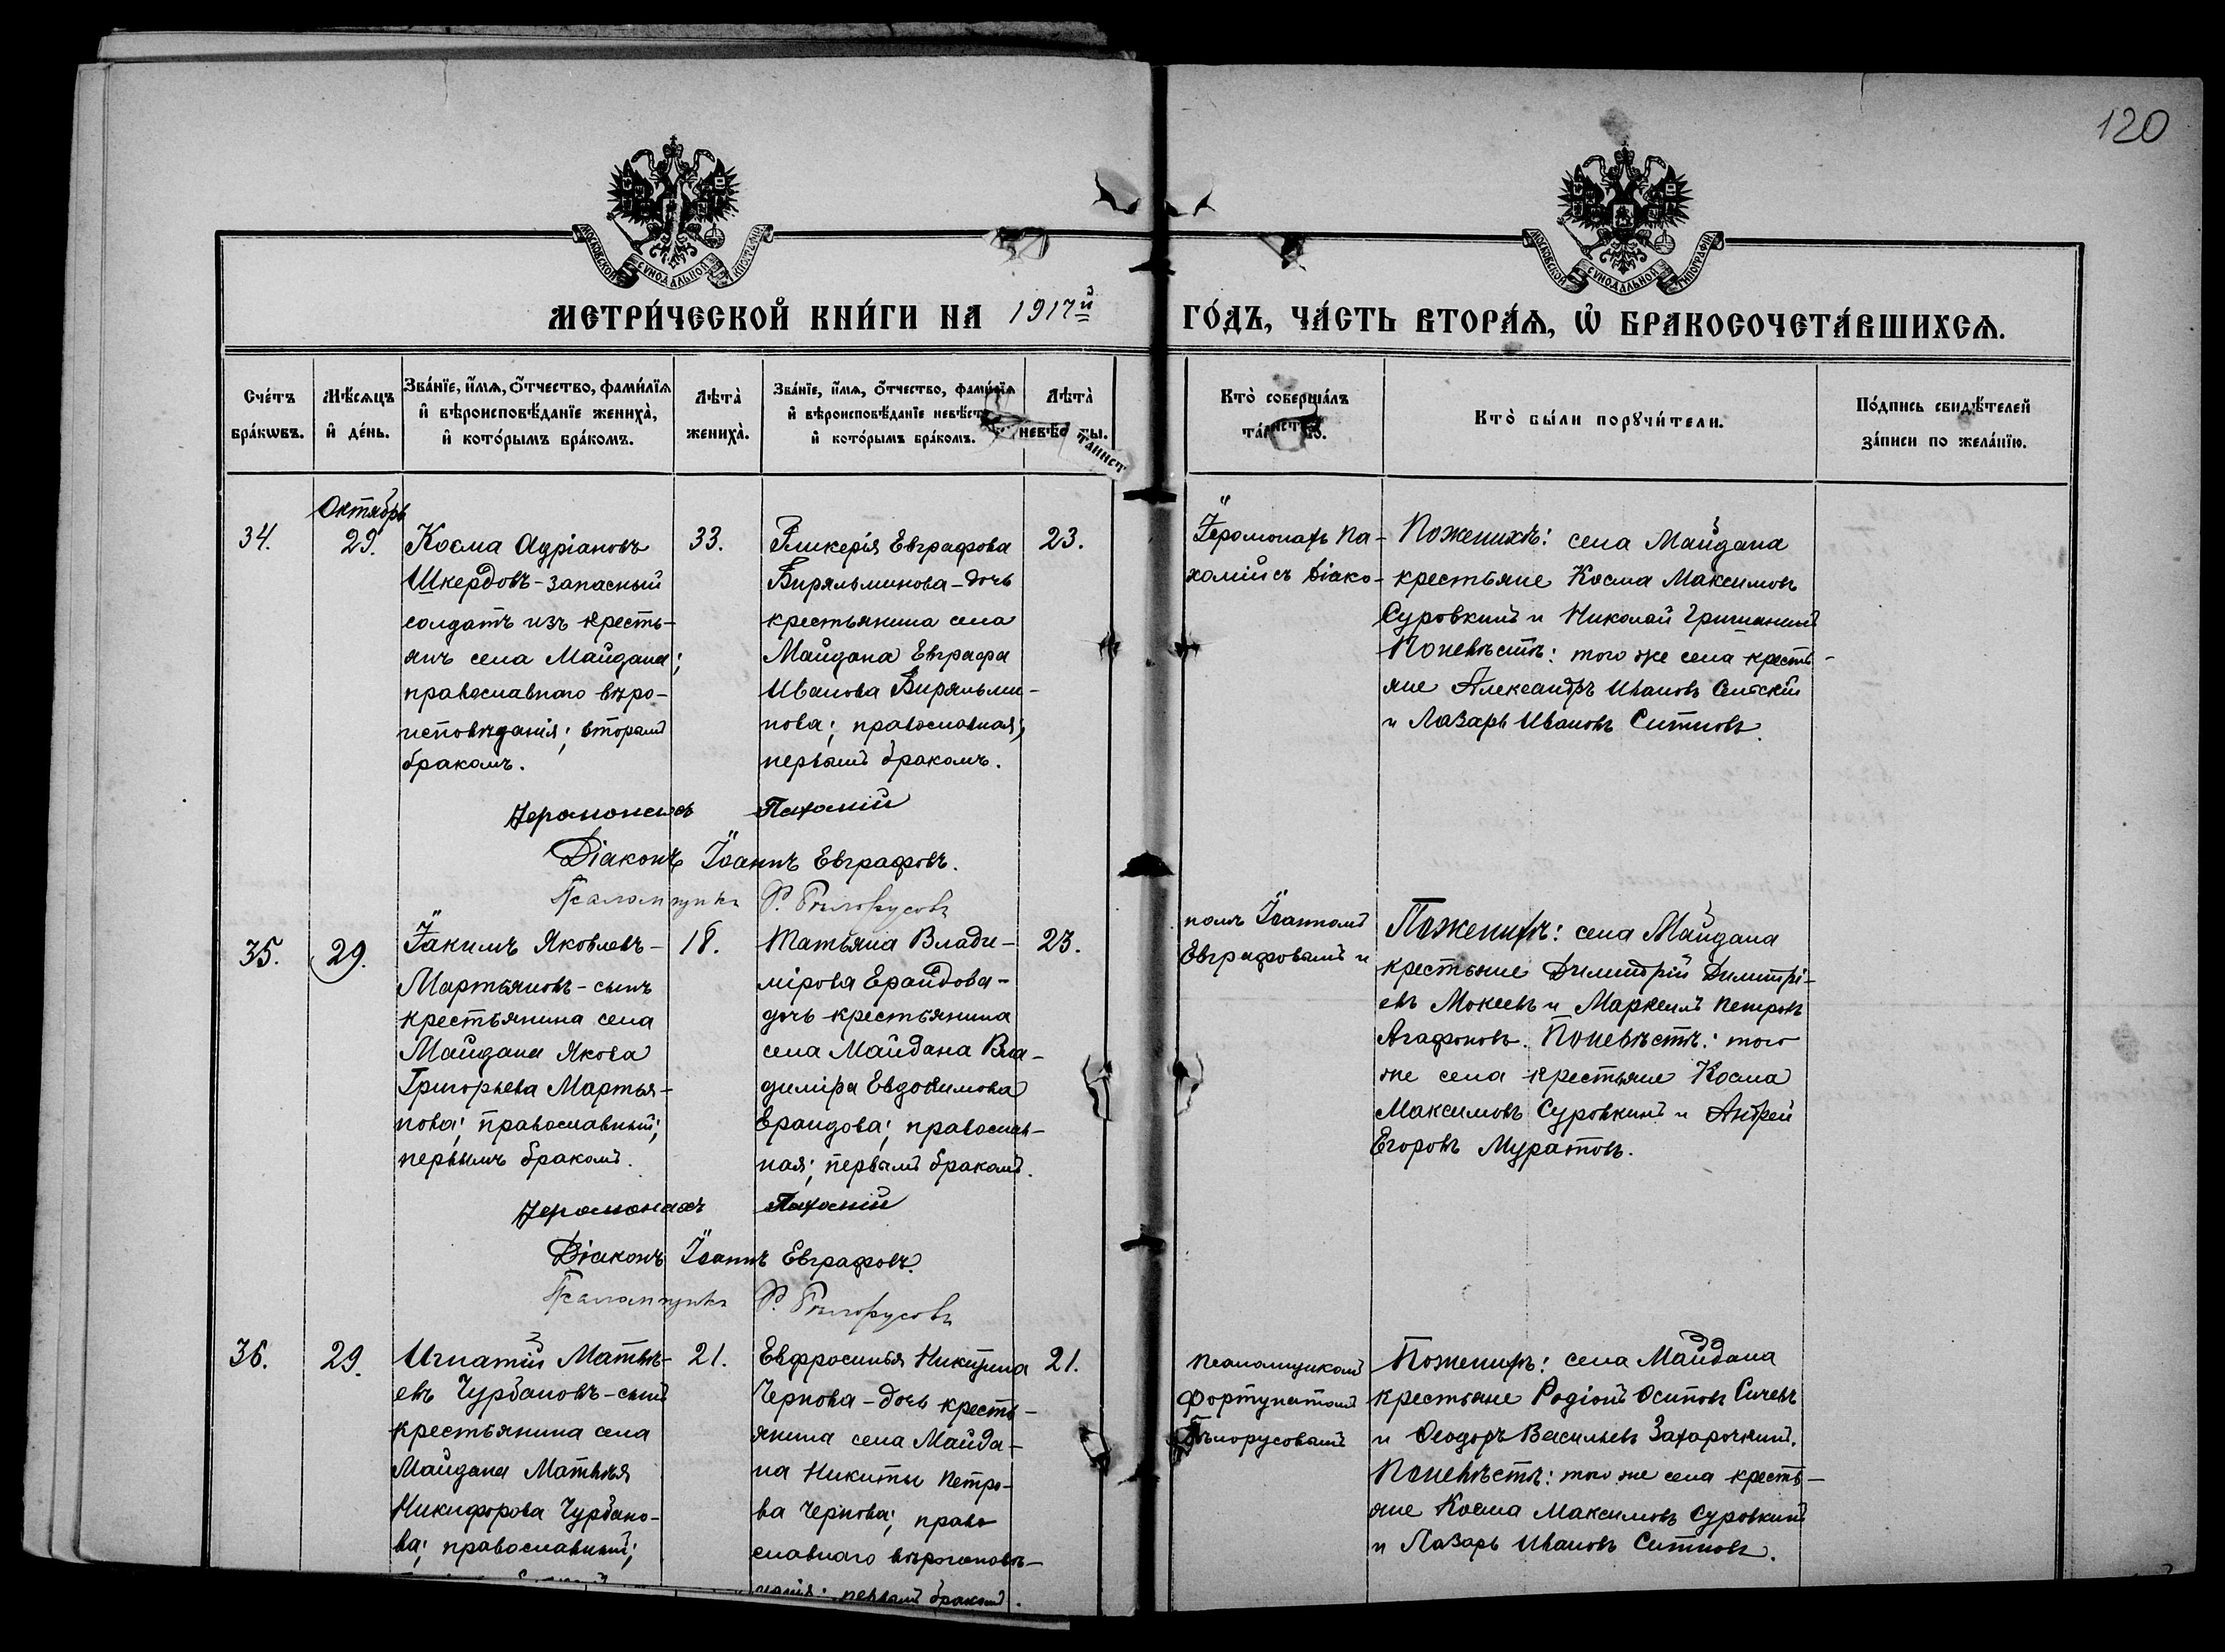 120
МОСКОВСКОЙ СѴНОДАЛЬНОЙ ТИПОГРАФІИ
МОСКОВСКОЙ СѴНОДАЛЬНОЙ ТИПОГРАФІИ
МЕТРИ́ЧЕСКОЙ КНИ́ГИ НА 1917й ГО́ДЪ, ЧА́СТЬ ВТОРА́Ѧ, Ѡ҆ БРАКОСОЧЕТА́ВШИХСѦ.
Сче́тъ
бра́кѡвъ.
Мѣ́сѧцъ
и҆ де́нь.
Зва́нїе, и҆́мѧ, ѻ҆́тчество, фами́лїѧ
и҆ вѣроисповѣ́данїе жениха̀,
и҆ кото́рымъ бра́комъ.
Лѣта̀
жениха̀.
Зва́нїе, и҆́мѧ, ѻ҆́тчество, фами́лїѧ
и҆ вѣроисповѣ́данїе невѣ́сты
и҆ кото́рымъ бра́комъ.
Лѣта̀
невѣ́сты.
Кто̀ соверша́лъ
та́инство.
Кто̀ бы́ли порꙋчи́тели.
По́дпись свидѣ́телей
за́писи по жела́нїю.
Октябрь
34.
29.
Косма Адріановъ
Шкердовъ - запасный
солдатъ изъ кресть-
янъ села Майдана;
православнаго вѣро-
исповѣданія; вторымъ
бракомъ.
33.
Гликерія Евграфова
Биряльминова - дочь
крестьянина села
Майдана Евграфа
Иванова Биряльми-
нова; православная;
первымъ бракомъ.
23.
Іеромонахъ Па-
хомій съ діако-
Поженихѣ: села Майдана
крестьяне Косма Максимовъ
Суровкинъ и Николай Гришанинъ
Поневѣстѣ: того же села кресть-
яне Александръ Ивановъ
и Лазарь Ивановъ Ситновъ.
Іеромонахъ Пахомій
Діаконъ Іоаннъ Евграфовъ.
Псаломщикъ Ф. Бѣлорусовъ
35.
29.
Іакимъ Яковлевъ -
Мартьяновъ - сынъ
крестьянина села
Майдана Якова
Григорьева Мартья-
нова; православный;
первымъ бракомъ.
18.
Татьяна Влади-
мірова Ерандова -
дочь крестьянина
села Майдана Вла-
диміра Евдокимова
Ерандова; православ-
ная; первымъ бракомъ.
23.
номъ Іоанномъ
Евграфовымъ и
Поженихѣ: села Майдана
крестьяне Димитрій Димитрі-
евъ Мокеевъ и Маркелъ Петровъ
Агафоновъ. Поневѣстѣ: того
же села крестьяне Косма
Максимовъ Суровкинъ и Андрей
Егоровъ Муратовъ.
Іеромонахъ Пахомій
Діаконъ Іоаннъ Евграфовъ.
Псаломщикъ Ф. Бѣлорусовъ
36.
29.
Игнатій Матвѣ-
евъ Чурбановъ - сынъ
крестьянина села
Майдана Матвѣя
Никифорова Чурбано-
ва; православный;
21.
Евфросинья Никитина
Чернова - дочь кресть-
янина села Майда-
на Никиты Петро-
ва Чернова; право
славнаго вѣроисповѣ-
данія; первымъ бракомъ.
21.
псаломщикомъ
Фортунатомъ
Бѣлорусовымъ
Поженихѣ: села Майдана
крестьяне Родіонъ Осиповъ Сичевъ
и Ѳеодоръ Васильевъ Захарочкинъ.
Поневѣстѣ: того же села кресть-
яне Косма Максимовъ Суровкинъ
и Лазарь Ивановъ Ситновъ.